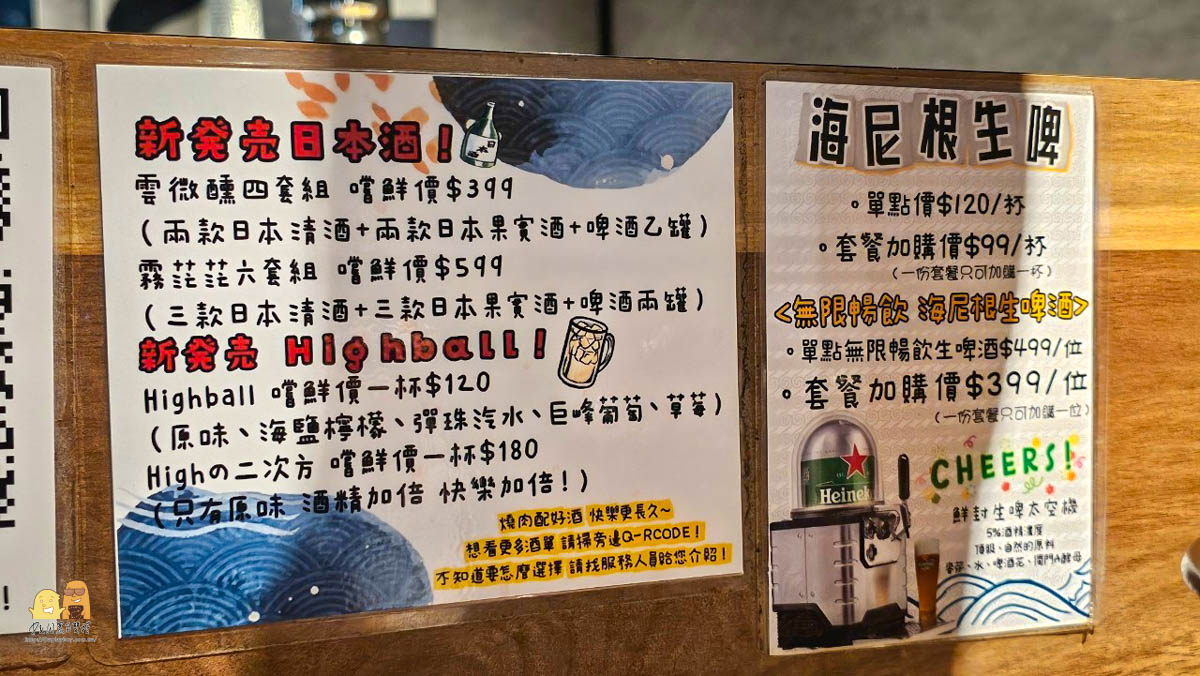 新発売日本酒！
雲微醺四套組 嚐鮮價$399
（兩款日本清酒+兩款日本果實酒+啤酒乙罐）
霧茫茫六套組 嚐鮮價$599
（三款日本清酒+三款日本果實酒+啤酒兩罐）
新発売 Highball！
Highball 嚐鮮價一杯$120
（原味、海鹽檸檬、彈珠汽水、巨峰葡萄、草莓）
Highの二次方 嚐鮮價一杯$180
（只有原味 酒精加倍 快樂加倍！）
燒肉配好酒 快樂更長久~
想看更多酒單 請掃旁邊Q-RCODE！
不知道要怎麼選擇 請找服務人員給您介紹！
海尼根生啤
。單點價$120/杯
。套餐加購價$99/杯
（一份套餐只可加購一杯）
<無限暢飲 海尼根生啤酒>
。單點無限暢飲生啤酒$499/位
。套餐加購價$399/位
（一份套餐只可加購一位）
CHEERS!
Heinek
鮮封生啤太空機
5%酒精濃度
頂級、自然的原料
麥芽、水、啤酒花、獨門A酵母